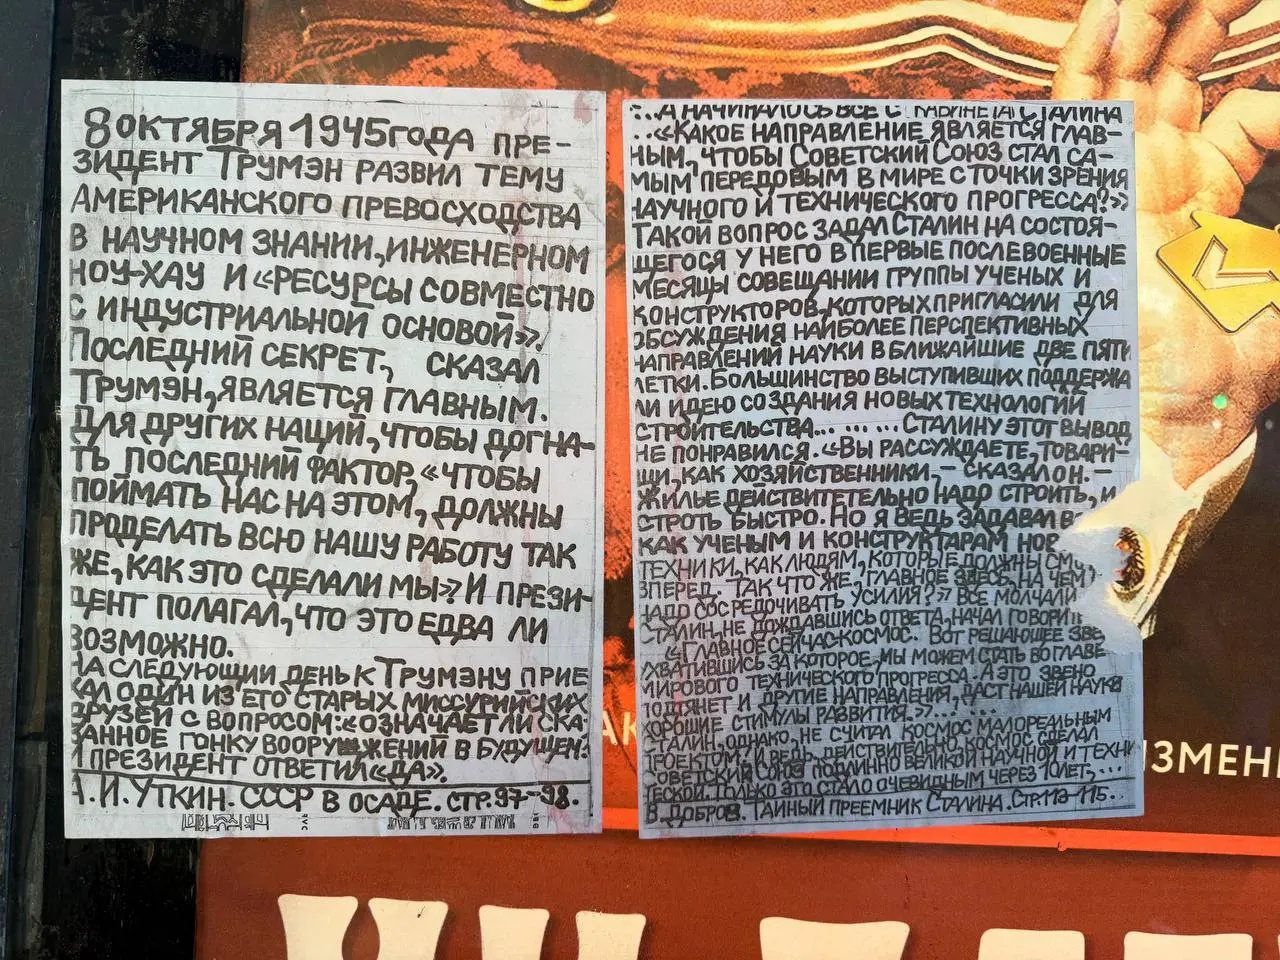 8 ОКТЯБРЯ 1945 ГОДА ПРЕ-
ЗИДЕНТ ТРУМЭН РАЗВИЛ ТЕМУ
АМЕРИКАНСКОГО ПРЕВОСХОДСТВА
В НАУЧНОМ ЗНАНИИ, ИНЖЕНЕРНОМ
НОУ-ХАУ И «РЕСУРСЫ СОВМЕСТНО
С ИНДУСТРИАЛЬНОЙ ОСНОВОЙ».
ПОСЛЕДНИЙ СЕКРЕТ, СКАЗАЛ
ТРУМЭН, ЯВЛЯЕТСЯ ГЛАВНЫМ.
ДЛЯ ДРУГИХ НАЦИЙ, ЧТОБЫ ДОГНА-
ТЬ ПОСЛЕДНИЙ ФАКТОР, «ЧТОБЫ
ПОЙМАТЬ НАС НА ЭТОМ, ДОЛЖНЫ
ПРОДЕЛАТЬ ВСЮ НАШУ РАБОТУ ТАК
ЖЕ, КАК ЭТО СДЕЛАЛИ МЫ». И ПРЕЗИ-
ДЕНТ ПОЛАГАЛ, ЧТО ЭТО ЕДВА ЛИ
ВОЗМОЖНО.
НА СЛЕДУЮЩИЙ ДЕНЬ К ТРУМЭНУ ПРИЕ
ХАЛ ОДИН ИЗ ЕГО СТАРЫХ МИССУРИЙСКИХ
ДРУЗЕЙ С ВОПРОСОМ: «ОЗНАЧАЕТ ЛИ СКА-
ЗАННОЕ ГОНКУ ВООРУЖЕНИЙ В БУДУЩЕМ?
И ПРЕЗИДЕНТ ОТВЕТИЛ «ДА».
А.И. УТКИН. СССР В ОСАДЕ. СТР. 97-98.
...А НАЧИНАЛОСЬ ВСЕ С КАБИНЕТА СТАЛИНА
..«КАКОЕ НАПРАВЛЕНИЕ ЯВЛЯЕТСЯ ГЛАВ-
НЫМ, ЧТОБЫ СОВЕТСКИЙ СОЮЗ СТАЛ СА-
МЫМ ПЕРЕДОВЫМ В МИРЕ С ТОЧКИ ЗРЕНИЯ
НАУЧНОГО И ТЕХНИЧЕСКОГО ПРОГРЕССА?»
ТАКОЙ ВОПРОС ЗАДАЛ СТАЛИН НА СОСТОЯ-
ЩЕГОСЯ У НЕГО В ПЕРВЫЕ ПОСЛЕВОЕННЫЕ
МЕСЯЦЫ СОВЕЩАНИИ ГРУППЫ УЧЕНЫХ И
КОНСТРУКТОРОВ, КОТОРЫХ ПРИГЛАСИЛИ ДЛЯ
ОБСУЖДЕНИЯ НАИБОЛЕЕ ПЕРСПЕКТИВНЫХ
НАПРАВЛЕНИЙ НАУКИ В БЛИЖАЙШИЕ ДВЕ ПЯТИ
ЛЕТКИ. БОЛЬШИНСТВО ВЫСТУПИВШИХ ПОДДЕРЖА
ЛИ ИДЕЮ СОЗДАНИЯ НОВЫХ ТЕХНОЛОГИЙ
СТРОИТЕЛЬСТВА......... СТАЛИНУ ЭТОТ ВЫВОД
НЕ ПОНРАВИЛСЯ. «ВЫ РАССУЖДАЕТЕ, ТОВАРИ-
ЩИ, КАК ХОЗЯЙСТВЕННИКИ, – СКАЗАЛ ОН. –
ЖИЛЬЕ ДЕЙСТВИТЕТЕЛЬНО НАДО СТРОИТЬ, И
СТРОТЬ БЫСТРО. НО Я ВЕДЬ ЗАДАВАЛ
КАК УЧЕНЫМ И КОНСТРУКТАРАМ НОВ
ТЕХНИКИ, КАК ЛЮДЯМ, КОТОРЫЕ ДОЛЖНЫ СМ
ВПЕРЕД. ТАК ЧТО ЖЕ, ГЛАВНОЕ ЗДЕСЬ, НА ЧЕМ
НАДО СОСРЕДОЧИВАТЬ УСИЛИЯ?» ВСЕ МОЛЧАЛИ
СТАЛИН, НЕ ДОЖДАВШИСЬ ОТВЕТА, НАЧАЛ ГОВОРИТЬ
«ГЛАВНОЕ СЕЙЧАС-КОСМОС. ВОТ РЕШАЮЩЕЕ ЗВЕ
УХВАТИВШИСЬ ЗА КОТОРОЕ, МЫ МОЖЕМ СТАТЬ ВО ГЛАВЕ
МИРОВОГО ТЕХНИЧЕСКОГО ПРОГРЕССА. А ЭТО ЗВЕНО
ПОДТЯНЕТ И ДРУГИЕ НАПРАВЛЕНИЯ, ДАСТ НАШЕЙ НАУКЕ
ХОРОШИЕ СТИМУЛЫ РАЗВИТИЯ.»......
СТАЛИН, ОДНАКО, НЕ СЧИТАЛ КОСМОС МАЛОРЕАЛЬНЫМ
ПРОЕКТОМ. И ВЕДЬ, ДЕЙСТВИТЕЛЬНО, КОСМОС СДЕЛАЛ
СОВЕТСКИЙ СОЮЗ ПОДЛИННО ВЕЛИКОЙ НАУЧНОЙ И ТЕХНИ
ЧЕСКОЙ. ТОЛЬКО ЭТО СТАЛО ОЧЕВИДНЫМ ЧЕРЕЗ 10 ЛЕТ,...
В. ДОБРОВ. ТАЙНЫЙ ПРЕЕМНИК СТАЛИНА. СТР. 113-115.